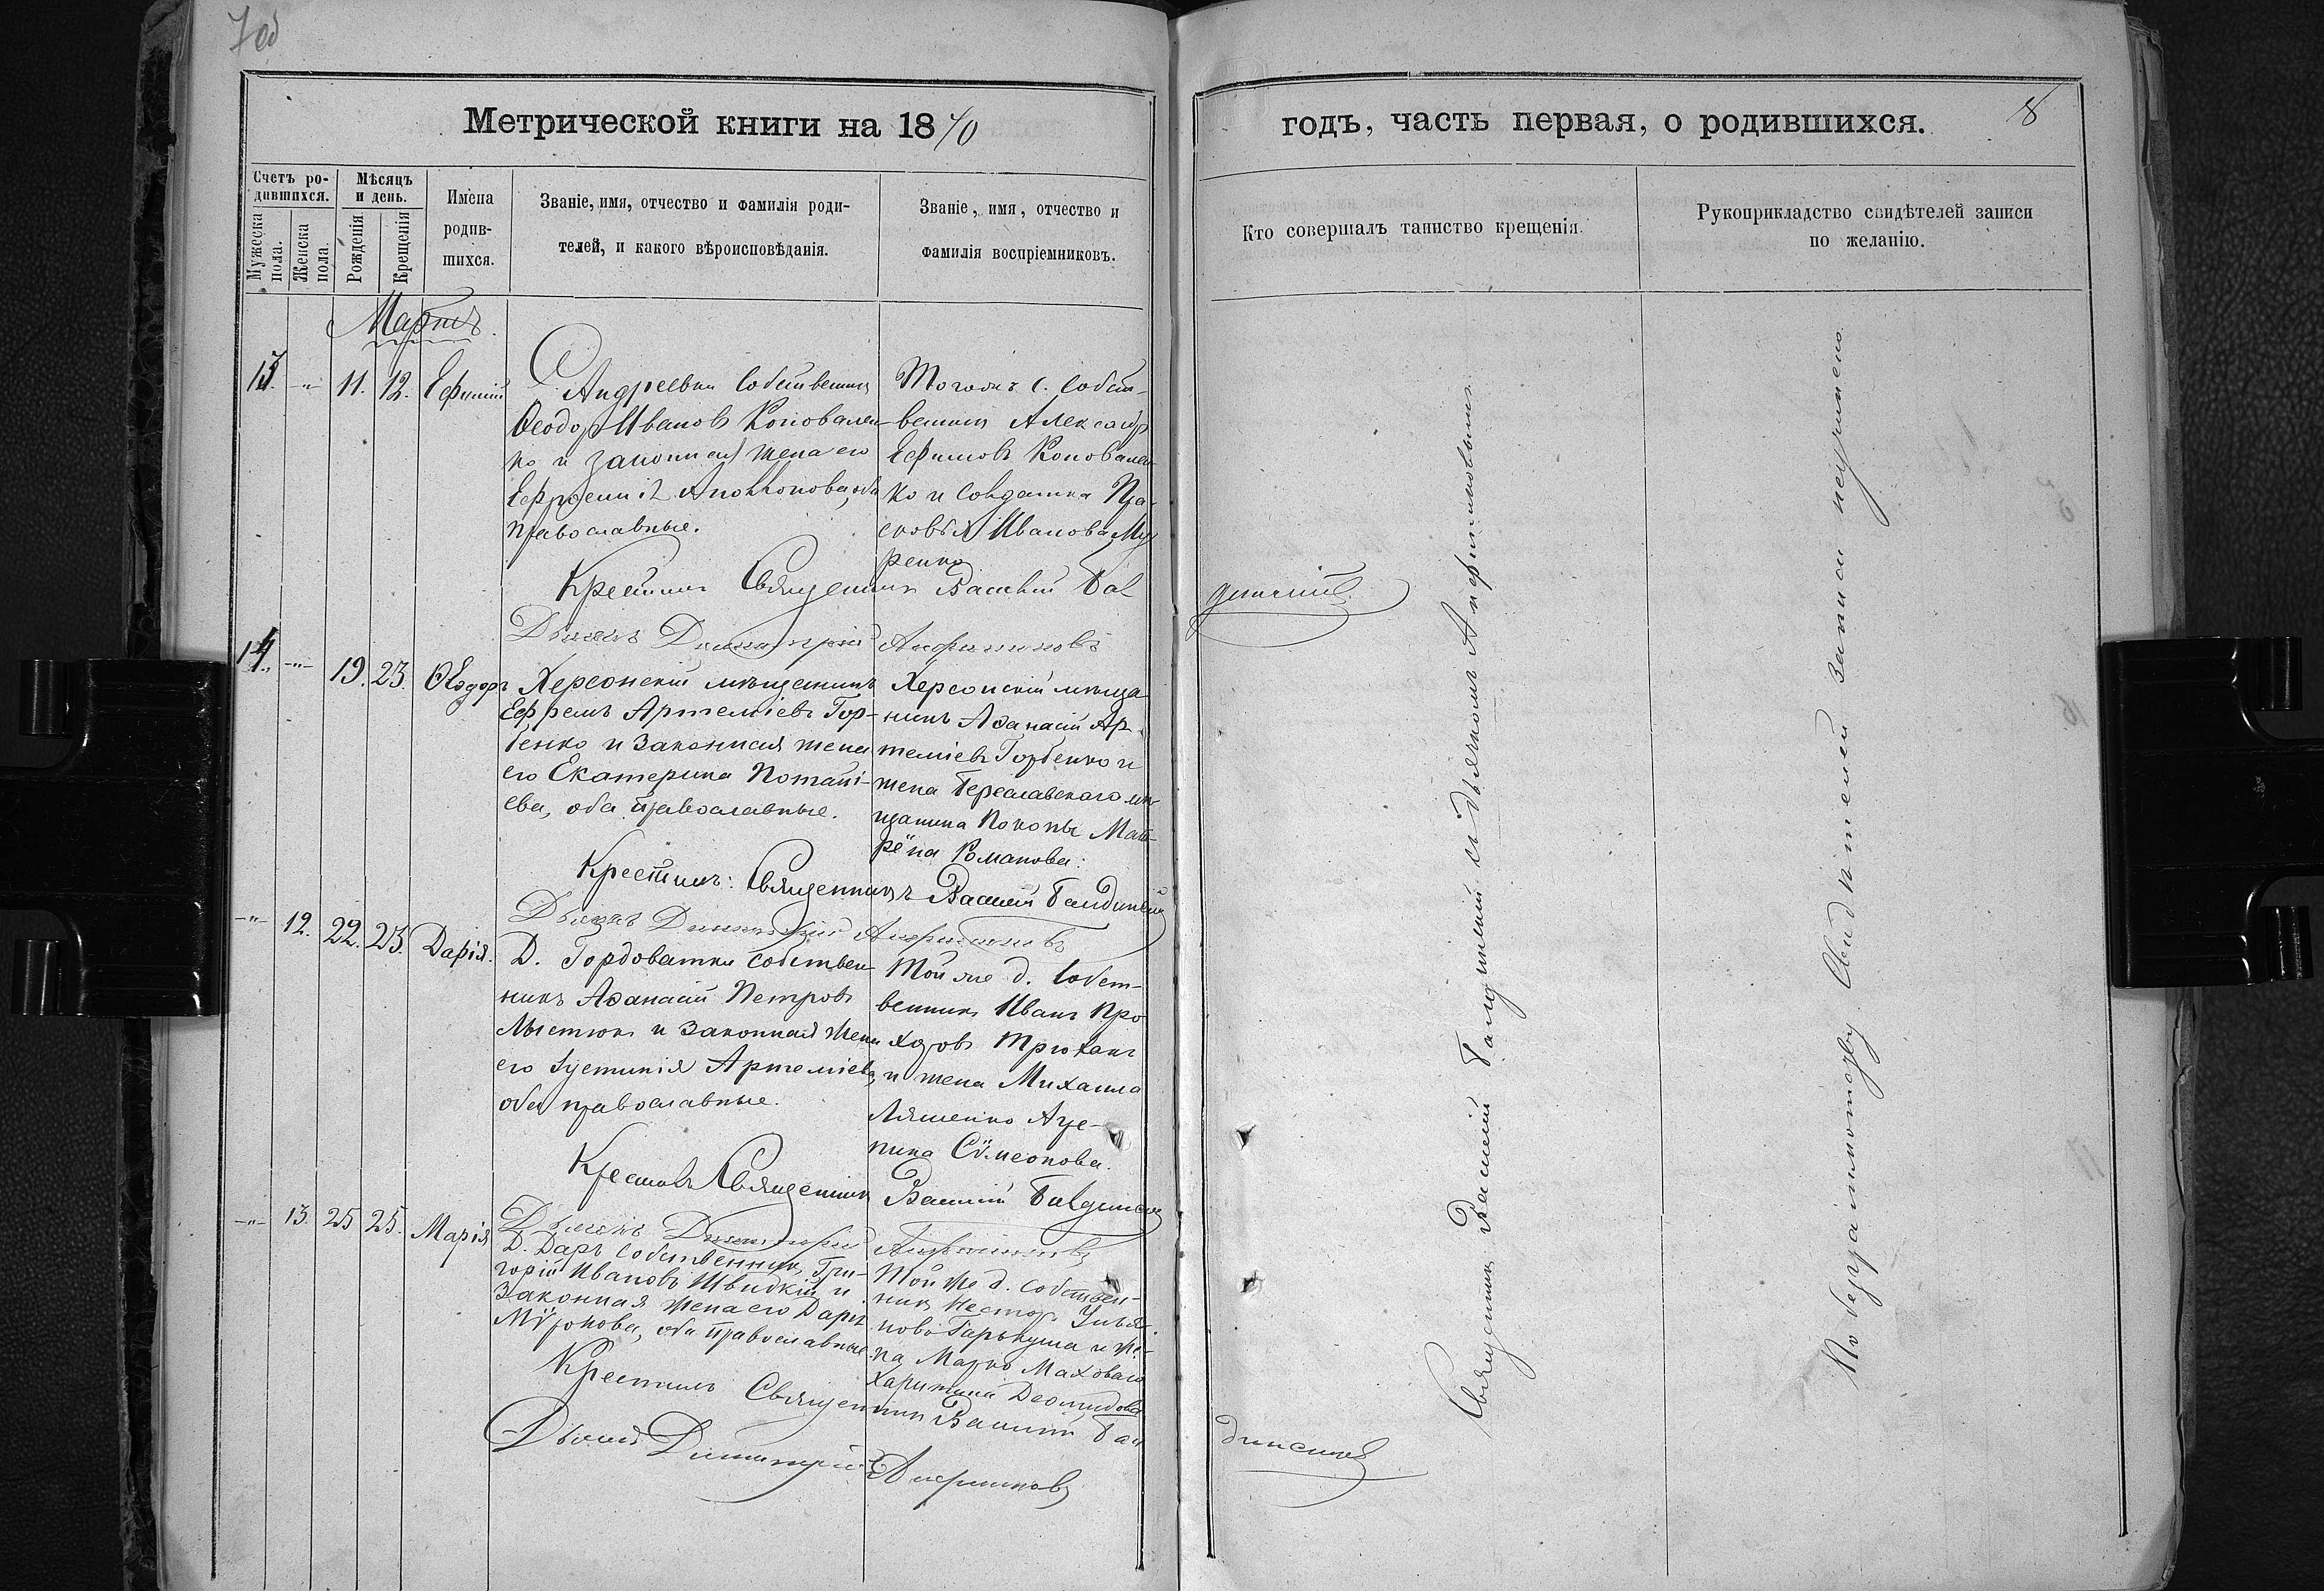 7об
Метрической книги на 1870
годъ, часть первая, о родившихся.
8
Счетъ ро-
дившихся.
Мужеска пола.
Женска пола.
Мѣсяцъ
и день.
Рожденія
Крещенія
Имена
родив-
шихся.
Званіе, имя, отчество и фамилія роди-
телей, и какого вѣроисповѣданія.
Званіе, имя, отчество и
фамилія воспріемниковъ.
Кто совершалъ таинство крещенія.
Рукоприкладство свидѣтелей записи
по желанію.
Мартъ.
13. -"- 11. 12. Ефимій
С. Андреевки собственникъ
Ѳеодоръ Ивановъ Коновален-
ко и законная жена его
Ефросинія, оба
православные.
Тогожъ с. собст-
венникъ Александръ
Ефимовъ Коновален-
ко и солдатка Пра-
сковья Иванова Му
ренко
Крестилъ Священникъ Василій Бал
динскій.
Дьячекъ Димитрій Анфиногеновъ
14. -"- 19. 23. Ѳеодоръ
Херсонскій мѣщанинъ
Ефремъ Артеміевъ Гор-
бенко и законная жена
его Екатерина Потапі-
ева, оба православные.
Херсонскій мѣща
нинъ Аѳанасій Ар
теміевъ Горбенко и
жена Береславскаго мѣ
щанина Матв-
рёна Романова.
Крестилъ: Священникъ Василій Балдинскій
Дьячекъ Димитрій
-"- 12. 22. 23. Дарія.
Д. Гордоватки собствен-
никъ Аѳанасій Петровъ
Мыстюкъ и законная жена
его Іустинія Артеміева,
оба православные.
Той же д. собст-
венникъ Иванъ Про
хоровъ Трюханъ
и жена Михаила
Ляшенко Агри-
пина Сѵмеонова.
Крестилъ Священникъ Василій Балдинскій
Дьячекъ Димитрій
-"- 13. 25 25. Марія
Д. Даръ собственникъ Гри-
горій Ивановъ Швидкій и
законная жена его Дарія
Мѵронова, оба православные.
Той же д. собствен-
никъ Несторъ Улья
новъ Гаркуша и же-
на Марко Маховаго
Харитина Деомидова
Крестилъ Священникъ Василій Бал
динскій
Дьячекъ Димитрій
Священникъ Василій Балдинскій съ дьячкомъ
По безграмотству свидѣтелей записи неучинено.